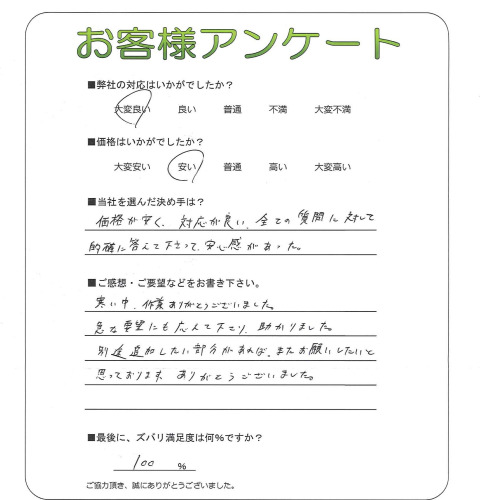 お客様アンケート
■弊社の対応はいかがでしたか?
大変良い 良い 普通 不満 大変不満
■価格はいかがでしたか?
大変安い 安い 普通 高い 大変高い
■当社を選んだ決め手は?
価格が安く、対応が良い、全ての質問に対して
的確に答えて下さって、安心感があった。
■ご感想・ご要望などをお書き下さい。
寒い中、作業ありがとうございました。
急な要望にも応えて下さり、助かりました。
別途追加したい部分があれば、またお願いしたいと
思っております。ありがとうございました。
■最後に、ズバリ満足度は何%ですか?
100 %
ご協力頂き、誠にありがとうございました。